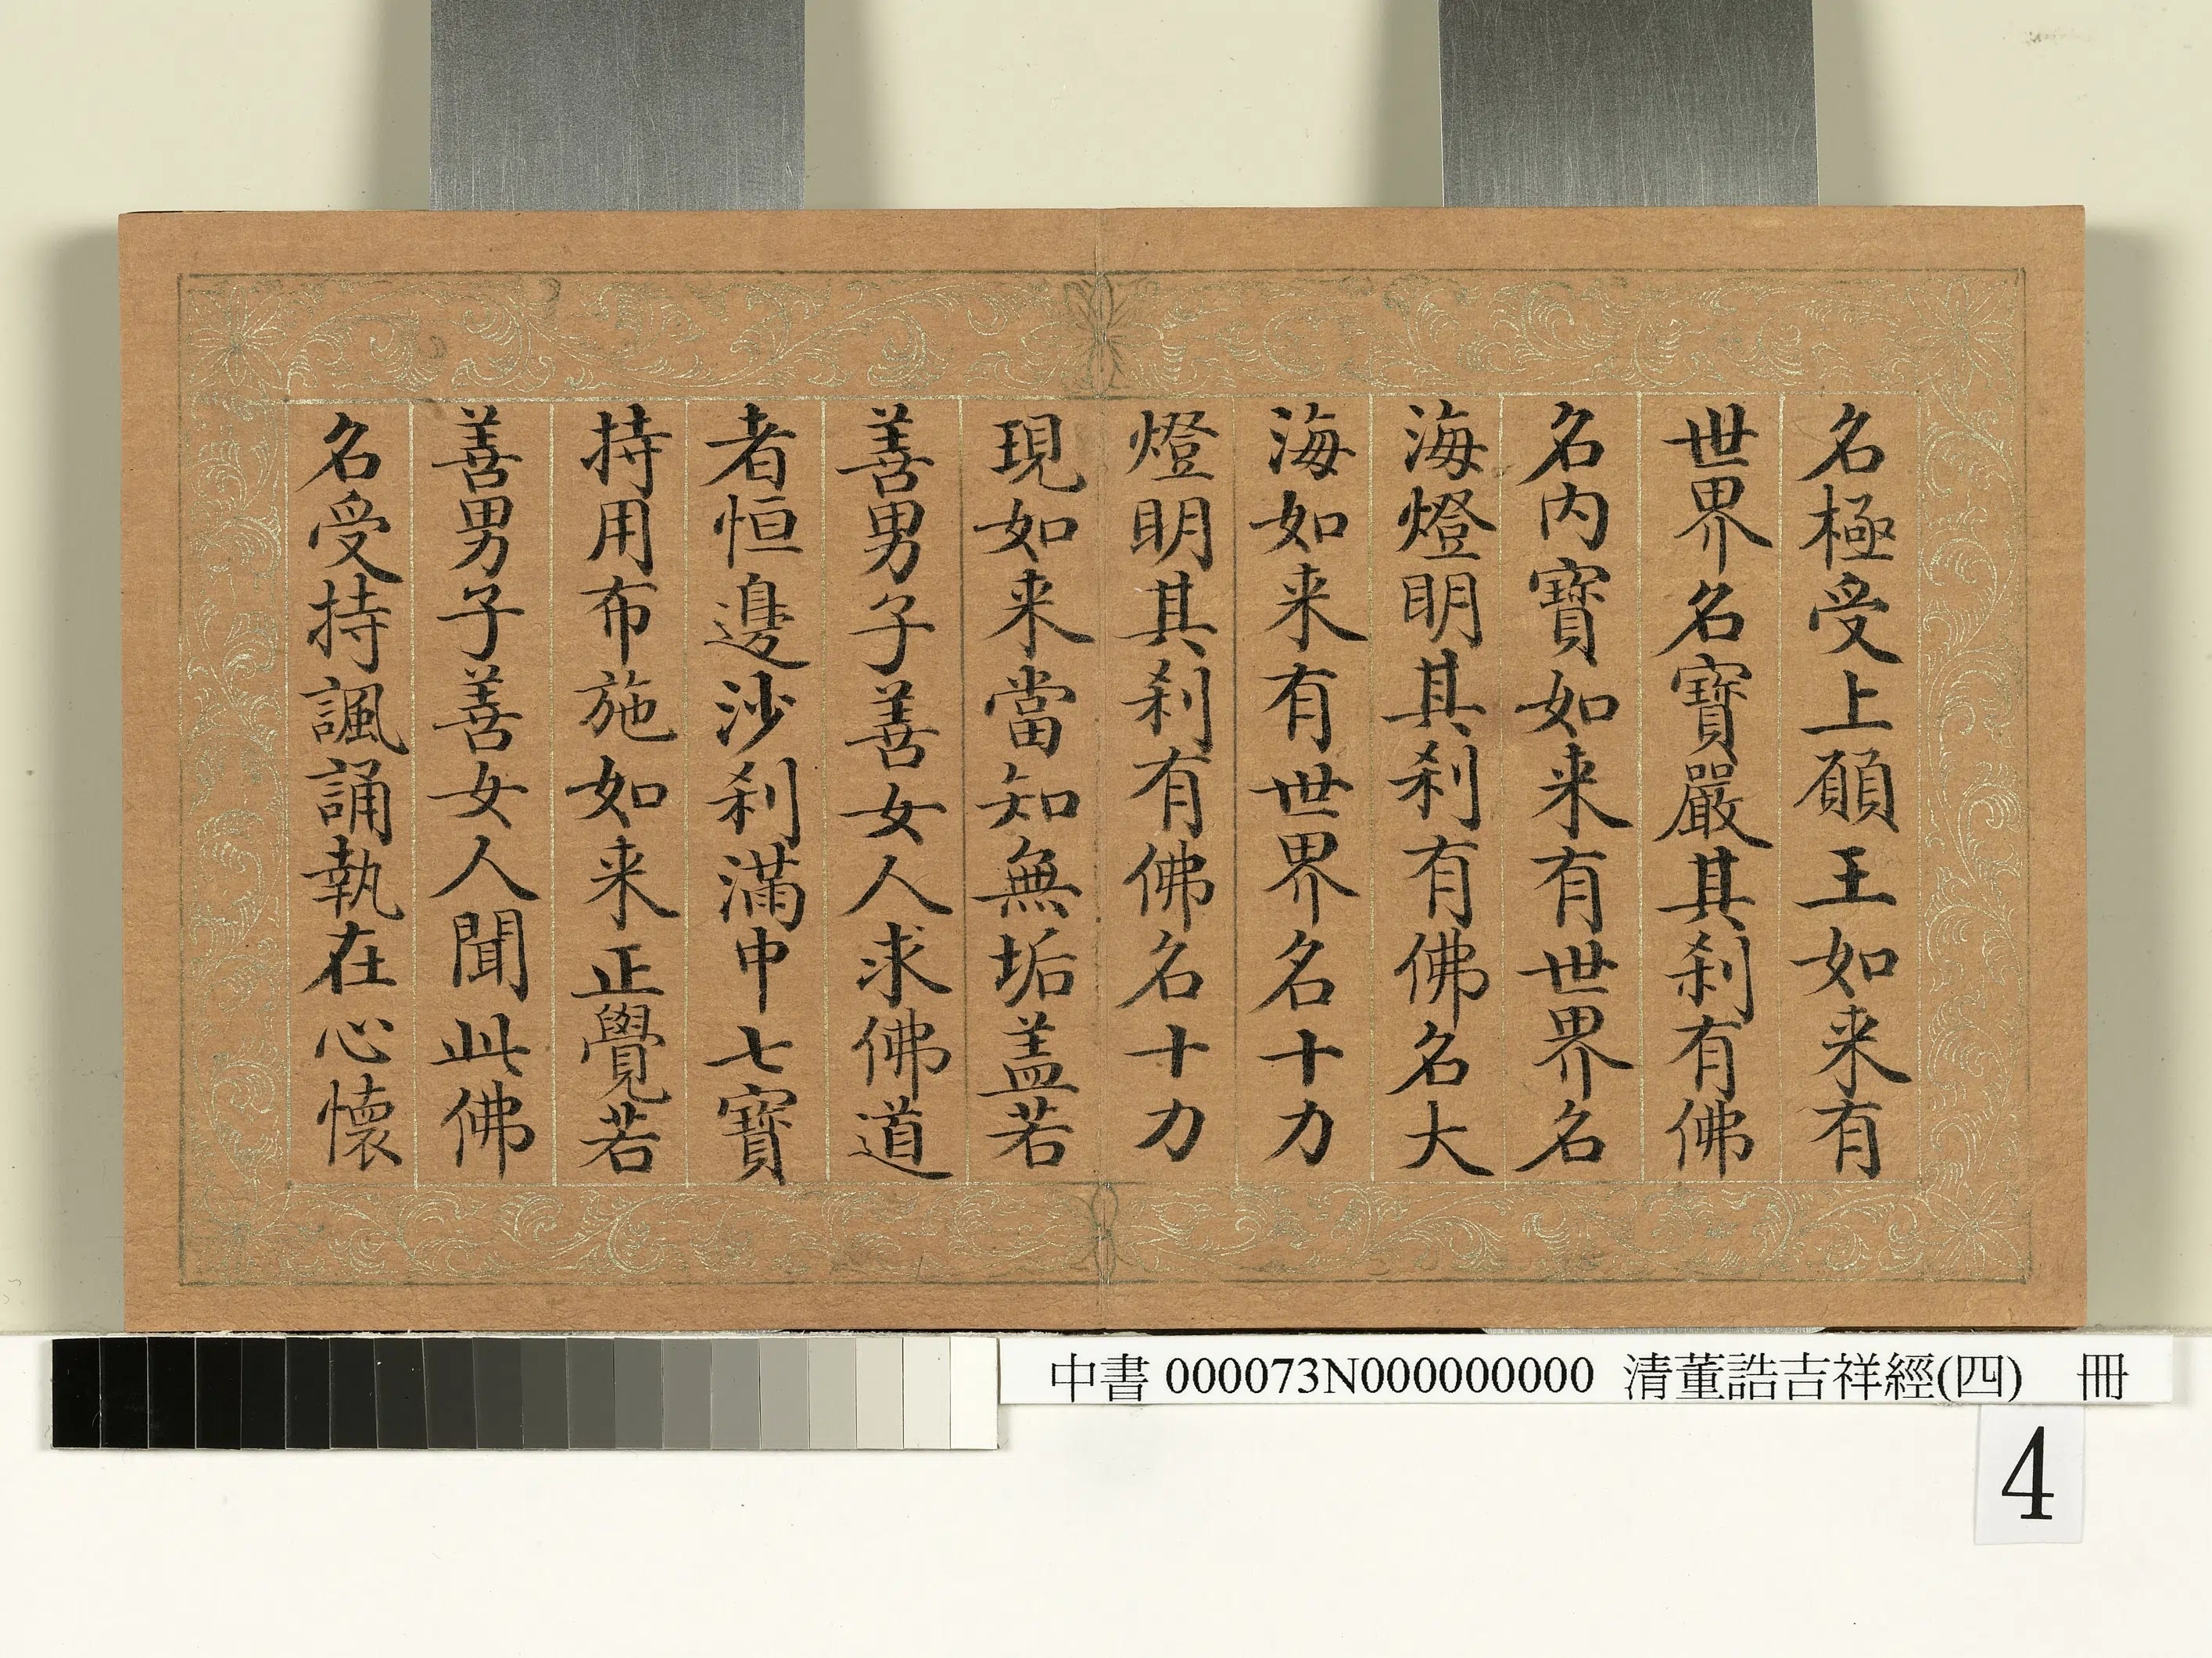 名極受上願王如来有
世界名寶嚴其刹有佛
名内寶如来有世界名
海燈明其刹有佛名大
海如来有世界名十力
燈明其刹有佛名十力
現如来當知無垢盖若
善男子善女人求佛道
者恒邊沙刹滿中七寶
持用布施如来正覺若
善男子善女人聞此佛
名受持諷誦執在心懷
中書 000073N000000000 清董誥吉祥經(四) 冊
4